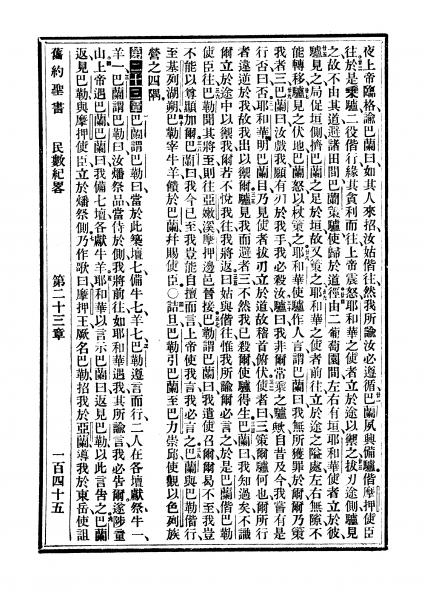 夜上帝臨格諭巴蘭曰如其人來招汝姑偕往然我所諭汝必遵循巴蘭夙興備驢偕摩押使臣
往於是乘驢二役偕行緣其貪利而往上帝震怒耶和華之使者立於途以禦之拔刃途側驢見
之故不由其道避諸田間巴蘭策驢使歸於道徑由二葡萄園間左右有垣耶和華使者立於彼
驢見之局促垣側擠巴蘭之足於垣故又策之耶和華之使者前往立於途之隘處左右無隙不
能轉移驢見之伏地巴蘭怒以杖策之耶和華使驢作人言謂巴蘭曰我無所獲罪於爾爾乃策
我者三巴蘭曰汝戲我願有刃於我手我必殺汝驢曰我非爾常乘之驢歟自昔及今我嘗有是
行否曰否耶和華明巴蘭目乃見使者拔刃立於道故稽首俯伏使者曰三策爾驢何也爾所行
者違逆於我故我出以禦爾驢見我而避者三不然我已殺爾使驢得生巴蘭曰我知過矣不識
爾立於途中以禦我爾若不悅我往我將返曰姑與偕往惟我所諭爾必言之於是巴蘭偕巴勒
使臣往巴勒聞其將至則往亞嫩溪摩押邊邑晉接巴蘭謂巴蘭曰我遣使召爾爾曷不至我豈
不能以尊顯加爾巴蘭曰我今已至我豈能自擅而言上帝使我言我必言之巴蘭與巴勒偕行
至基列湖朔巴勒宰牛羊餽於巴蘭幷賜使臣○詰旦巴勒引巴蘭至巴力崇邱使觀以色列族
營之四隅
第二十三章巴蘭謂巴勒曰當於此築壇七備牛七羊七巴勒遵言而行二人在各壇獻祭牛一
羊一巴蘭謂巴勒曰汝燔祭品當侍於側我將前往如耶和華遇我其所諭言我必告爾遂陟童
山上帝遇巴蘭巴蘭曰我備七壇各獻牛羊耶和華以言示巴蘭曰返見巴勒以此言告之巴蘭
返見巴勒與摩押使臣立於燔祭側乃作歌曰摩押王厥名巴勒招我於亞蘭導我於東岳使詛
舊約聖書 民數紀畧 第二十三章 一百四十五